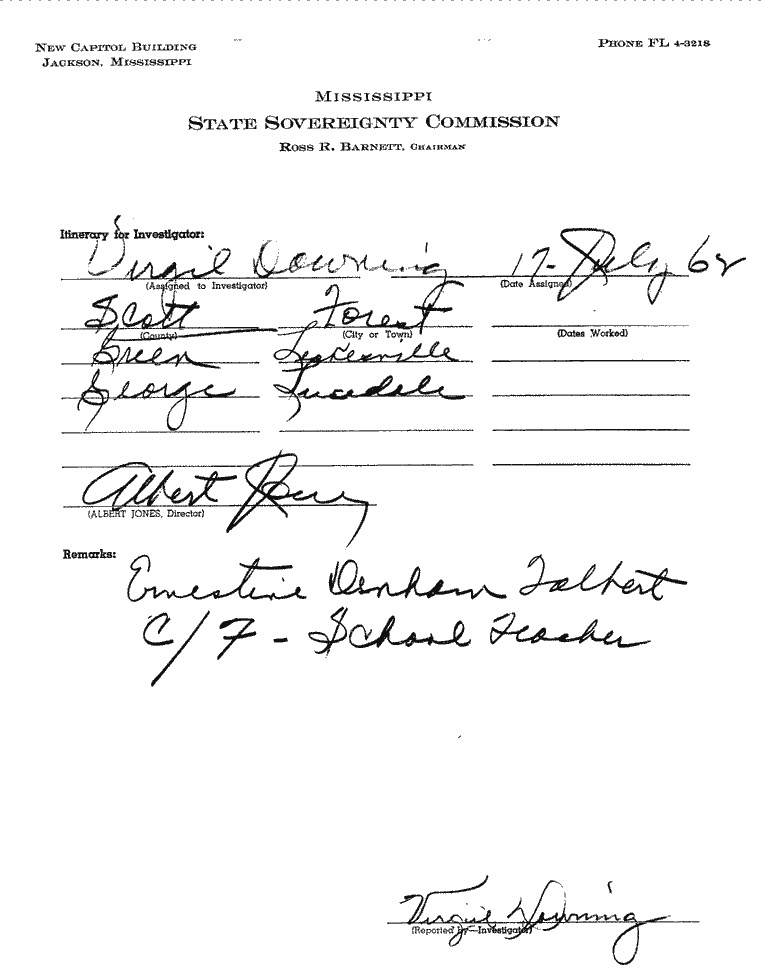 NEW CAPITOL BUILDING
JACKSON, MISSISSIPPI
PHONE FL 4-3218
MISSISSIPPI
STATE SOVEREIGNTY COMMISSION
ROSS R. BARNETT, CHAIRMAN
Itinerary for Investigator:
Virgil Downing 17-July 62
(Assigned to Investigator) (Date Assigned)
Scott Forest
(County) (City or Town) (Dates Worked)
Green Leakesville
George Lucedale
Albert Jones
(ALBERT JONES, Director)
Remarks:
Ernestine Denham Talbert
C/F - School Teacher
Virgil Downing
(Reported by—Investigator)